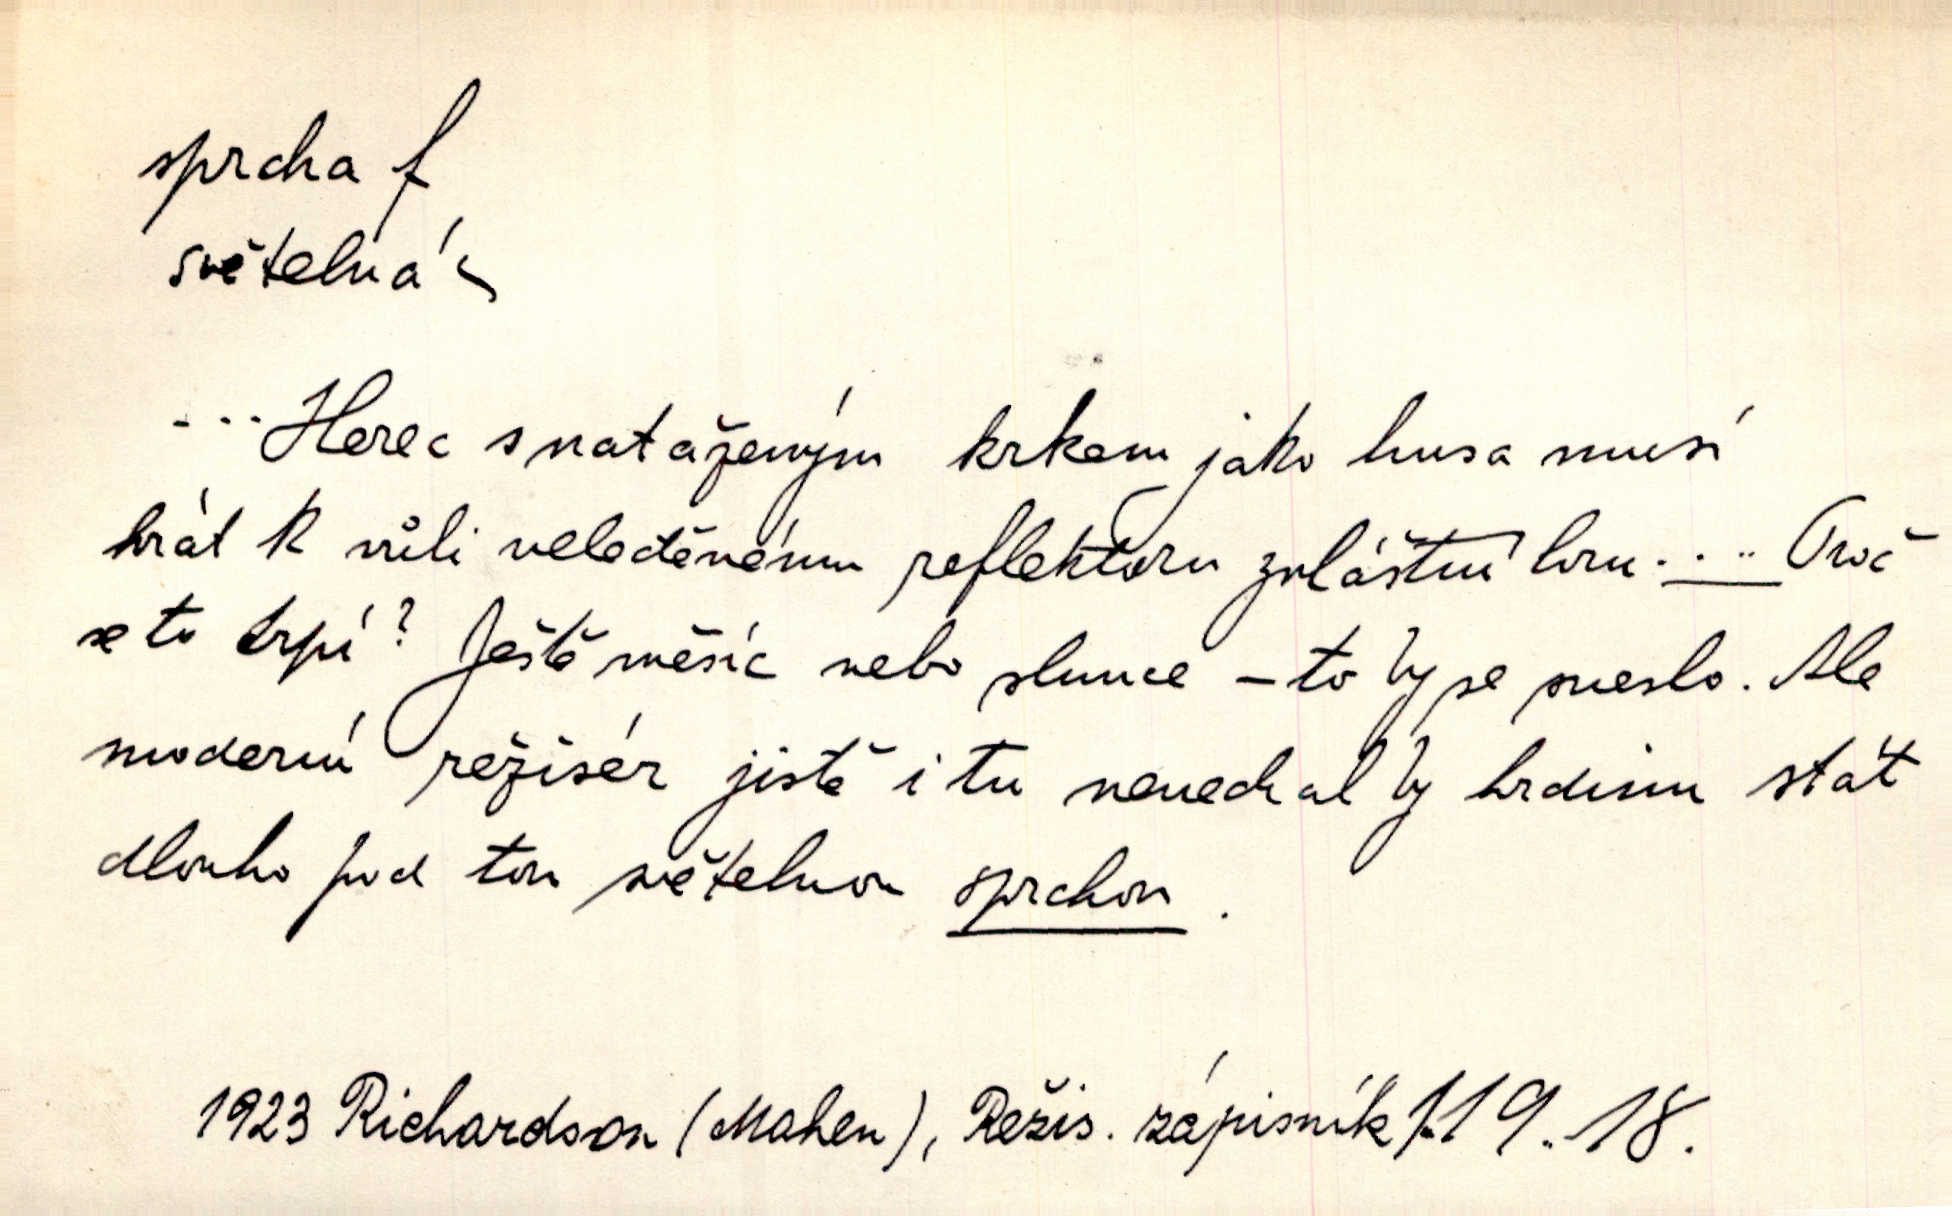 sprcha f
světelná
...Herec s nataženým krkem jako husa musí
hrát k vůli veleděnému reflektoru zvláštní hru.... Proč
se to trpí? Ještě měsíc nebo slunce – to by se sneslo. Ale
moderní režisér jistě i tu nenechal by hrdinu stát
dlouho pod tou světelnou sprchou.
1923 Richardson (Mahen), Režis. zápisník 119. 18.